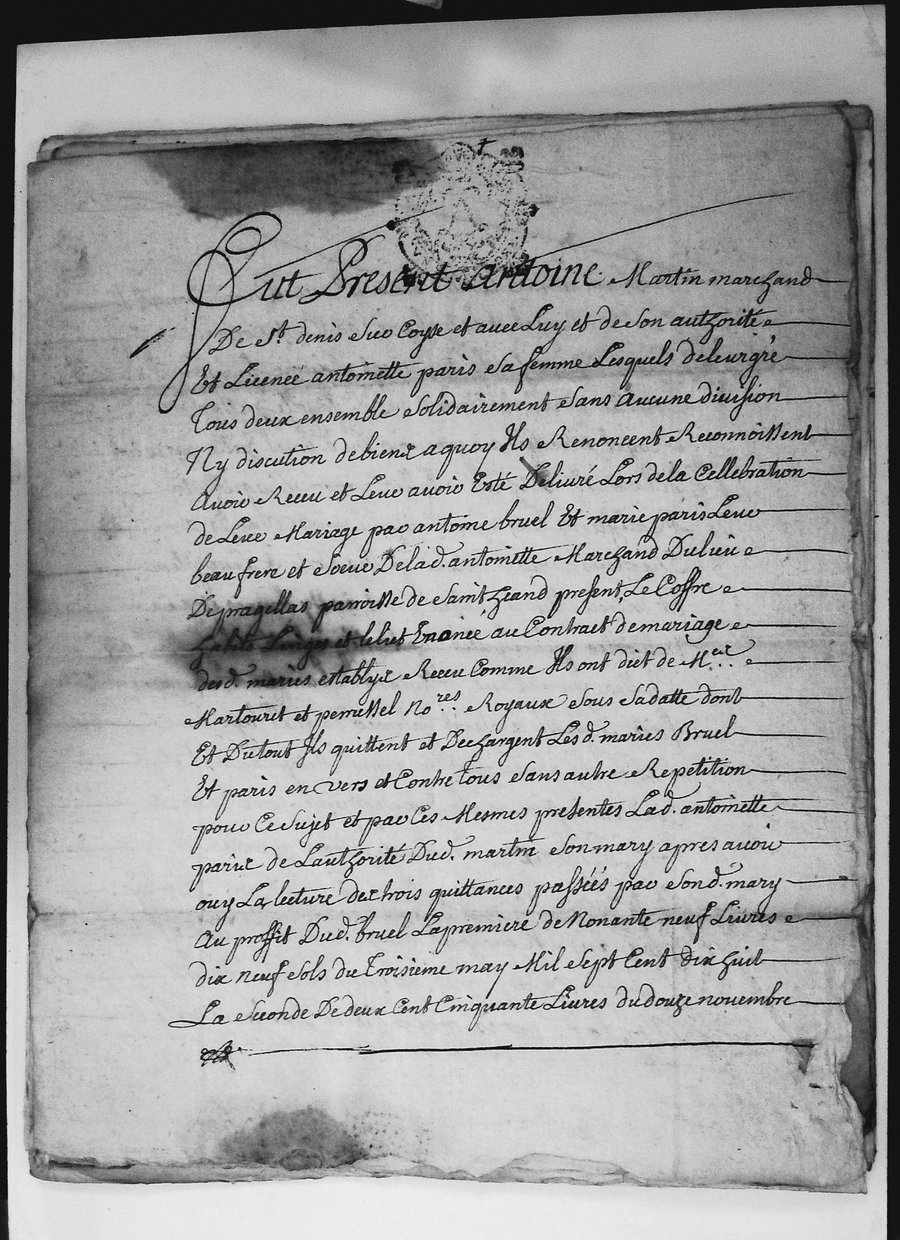 Fut Present Antoine Martin marchand
De St. denis Sur Coyse et avec Luy et de Son authorité
Et Licence antoinette paris Sa femme Lesquels de leur gré
Tous deux ensemble Solidairement Sans Aucune division
Ny discution de biens a quoy Ils Renoncent Reconnoissent
Avoir Receu et Leur avoir Esté Delivré Lors de la Cellebration
de Leur Mariage par antoine bruel Et marie paris Leur
beau frere et Soeur De lad. antoinette Marchand Du lieu
De pragellas parroisse de Saint heand present, Le Coffre
habits Linges et le liet Enoncé au Contract de mariage
desd. mariés establys Receu Comme Ils ont diet de Mes.
Martouret et permessel Nores. Royaux Sous Sa datte dont
Et Du tout Ils quittent et Dechargent Lesd. mariés Bruel
Et paris en vers et Contre tous Sans autre Repetition
pour Ce Sujet et par Ces Mesmes presentes Lad. antoinette
paris de L'authorité Dud. martin Son mary apres avoir
ouy La lecture des trois quittances passéés par Sond. mary
Au proffit Dud. bruel La premiere de Nonante neuf Livres
dix neuf Sols du Troisieme may Mil Sept Cent dix huit
La Seconde De deux Cent Cinquante Livres du douze novembre